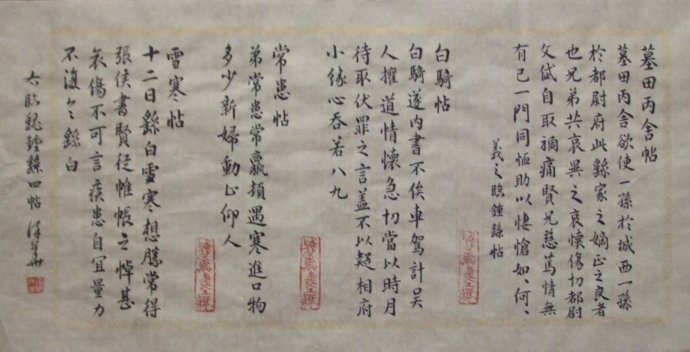 墓田丙舍帖
墓田丙舍欲使一孫於城西一孫
於都尉府此繇家之嫡正之良者
也兄弟共哀異之哀懷傷切都尉
文岱自取禍痛賢兄慈篤情無
有已一門同恤助以悽愴如何、、
羲之臨鍾繇帖
白騎帖
白騎遂內書不俟車駕計吴
人權道情懷急切當以時月
待取伏罪之言蓋不以疑相府
小緣心吞若八九
常患帖
弟常患常羸頓遇寒進口物
多少新婦動止仰人
雪寒帖
十二日繇白雪寒想勝常得
張侯書賢從帷帳之悼甚
哀傷不可言疾患自宜量力
不復々繇白
右臨魏鍾繇四帖